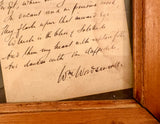 In vacant or in pensive mood
They flash upon that inward eye
Which is the bliss of Solitude
And then my heart with pleasure fills
And dances with the daffodils.
Wm Wordsworth